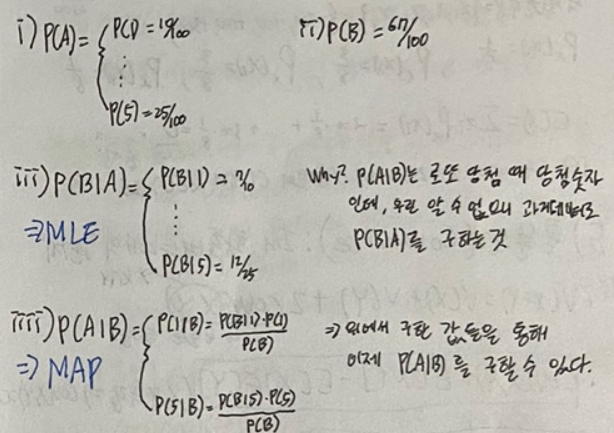 i) P(A) = { P(1) = 10/100
ii) P(B) = 67/100
⋮
P(5) = 25/100
iii) P(B|A) = { P(B|1) =
⋮
P(B|5) = 12/25
⇒ MLE
Why? P(A|B)는 로또 당첨 때 당첨숫자
인데, 우린 알 수 없으니 과거데이터로
P(B|A)를 구하는 것
iiii) P(A|B) = { P(1|B) = P(B|1)·P(1) / P(B)
⋮
P(5|B) = P(B|5)·P(5) / P(B)
⇒ MAP
⇒ 위에서 구한 값들을 통해
이제 P(A|B)를 구할 수 있다.